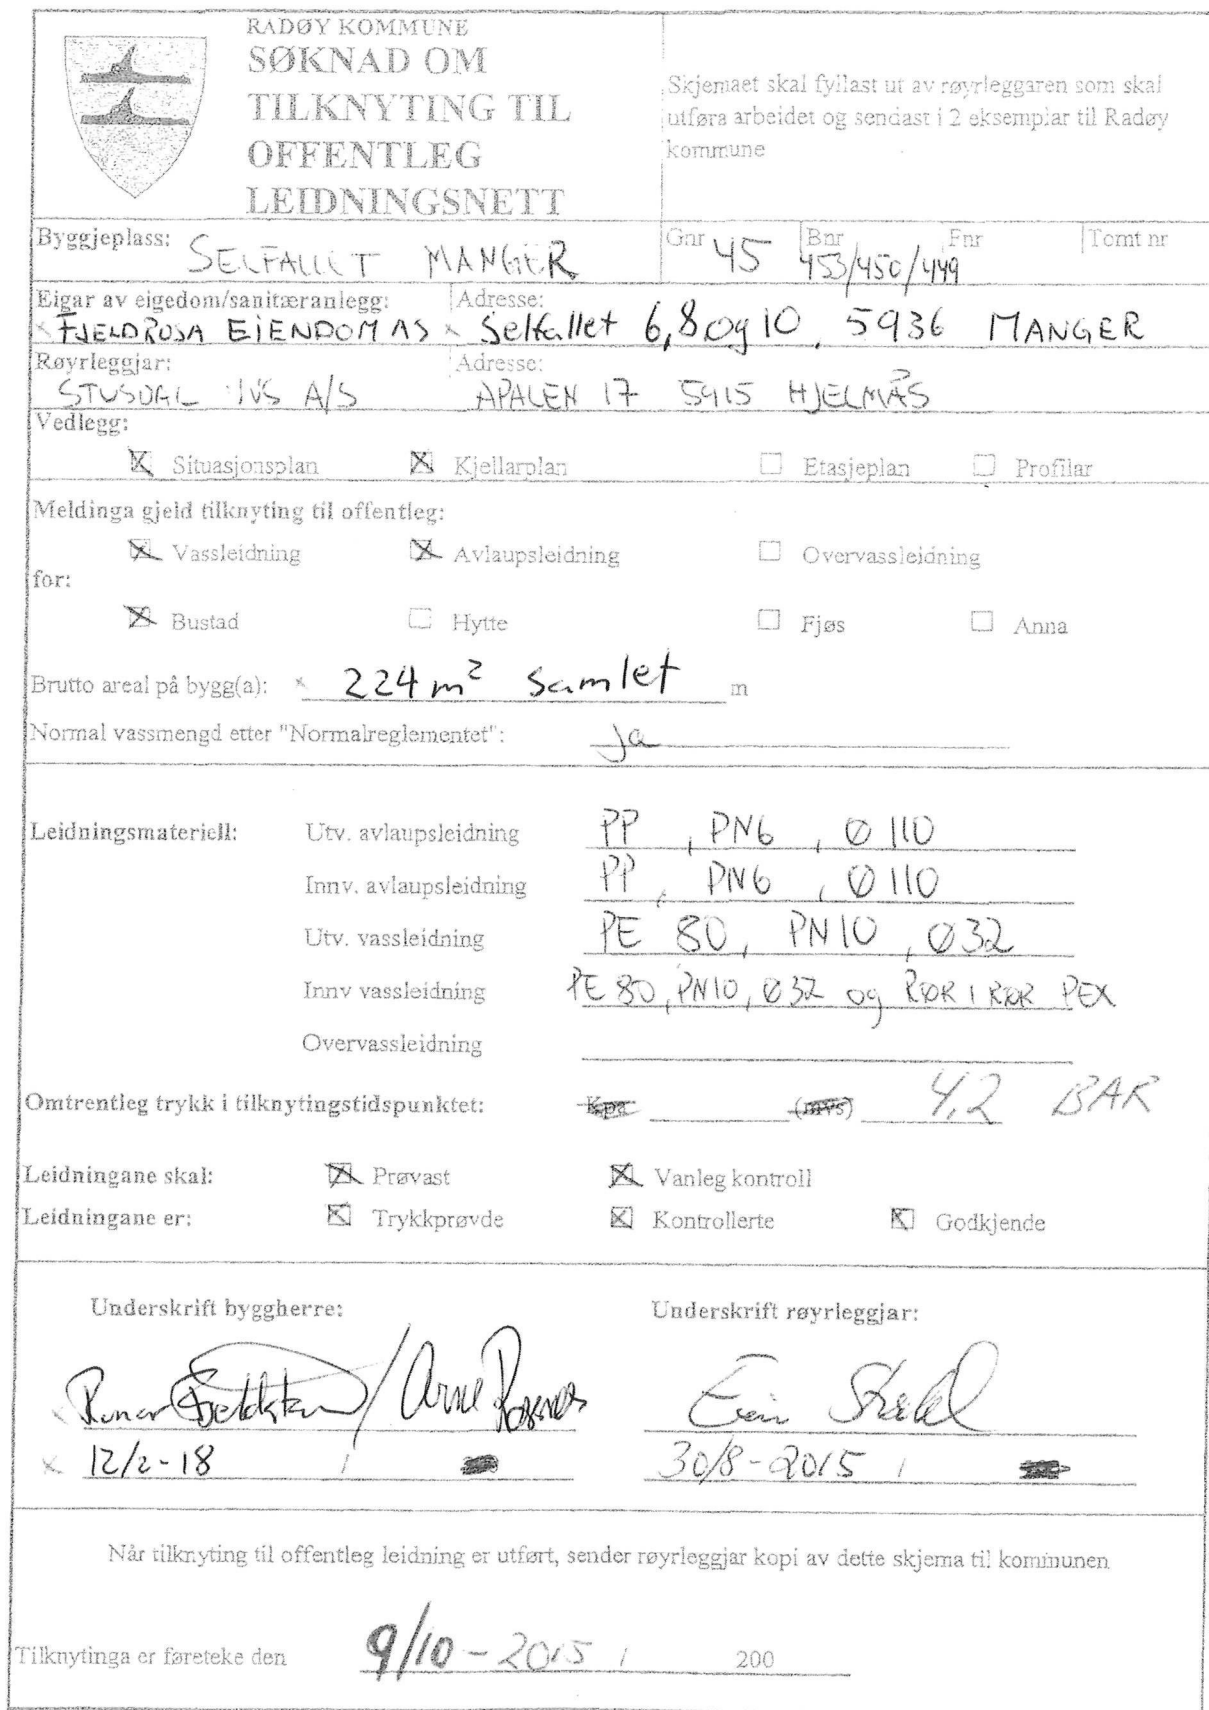 RADØY KOMMUNE
SØKNAD OM
TILKNYTING TIL
OFFENTLEG
LEIDNINGSNETT
Skjemaet skal fyllast ut av røyrleggaren som skal
utføra arbeidet og sendast i 2 eksemplar til Radøy
kommune
Byggjeplass: SELFALLET MANGER Gnr 45 Bnr 453/450/449 Fnr Tomt nr
Eigar av eigedom/sanitæranlegg: Adresse:
x FJELDROSA EIENDOM AS x Selfallet 6,8 og 10, 5936 MANGER
Røyrleggjar: Adresse:
STUSDAL VVS A/S APALEN 17 5915 HJELMÅS
Vedlegg:
X Situasjonsplan X Kjellarplan Etasjeplan Profilar
Meldinga gjeld tilknyting til offentleg:
X Vassleidning X Avlaupsleidning Overvassleidning
for:
X Bustad Hytte Fjøs Anna
Brutto areal på bygg(a): x 224 m² samlet m
Normal vassmengd etter "Normalreglementet": ja
Leidningsmateriell: Utv. avlaupsleidning PP, PN6, Ø 110
Innv. avlaupsleidning PP, PN6, Ø 110
Utv. vassleidning PE 80, PN10, Ø32
Innv vassleidning PE 80, PN10, Ø32 og RØR I RØR PEX
Overvassleidning
Omtrentleg trykk i tilknytingstidspunktet: Kpa (mvs) 4,2 BAR
Leidningane skal: X Prøvast X Vanleg kontroll
Leidningane er: X Trykkprøvde X Kontrollerte X Godkjende
Underskrift byggherre: Underskrift røyrleggjar:
x Runar / Arne
x 12/2-18 / 30/8-2015 /
Når tilknyting til offentleg leidning er utført, sender røyrleggjar kopi av dette skjema til kommunen
Tilknytinga er føreteke den 9/10-2015 / 200